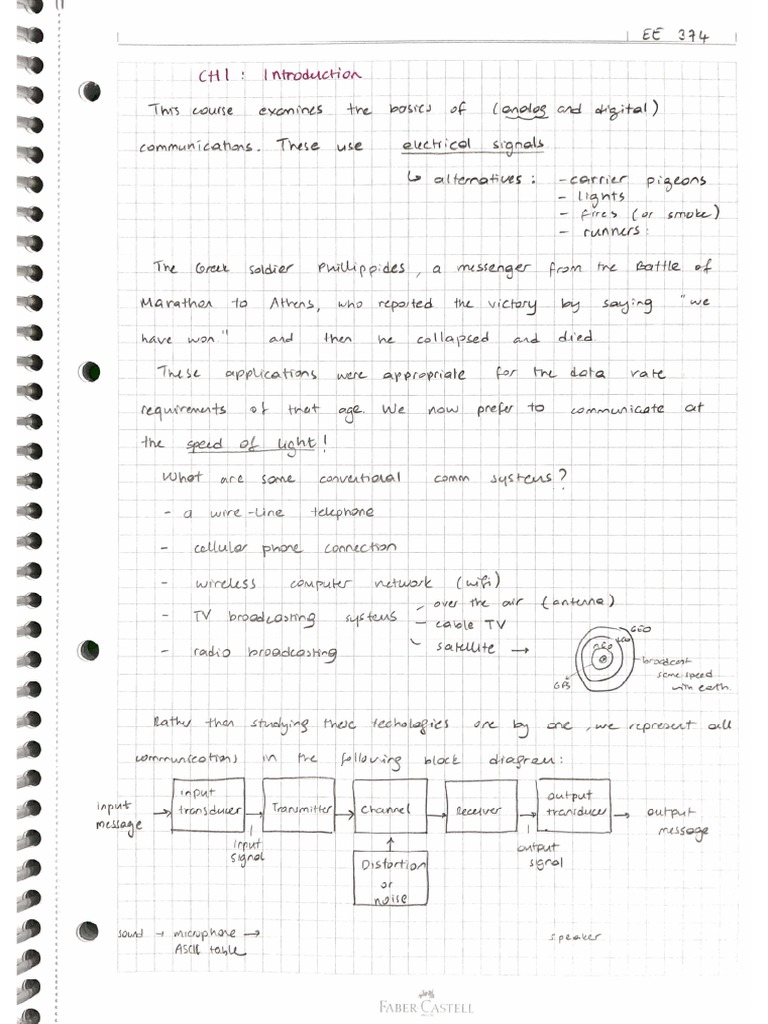 EE 374
CH1: Introduction
This course examines the basics of (analog and digital)
communications. These use electrical signals
↳ alternatives: - carrier pigeons
- lights
- fires (or smoke)
- runners:
The Greek soldier Phillippides, a messenger from the Battle of
Marathon to Athens, who reported the victory by saying "we
have won" and then he collapsed and died
These applications were appropriate for the data rate
requirements of that age. We now prefer to communicate at
the speed of light!
What are some conventional comm systems?
- a wire-line telephone
- cellular phone connection
- wireless computer network (wifi)
- TV broadcasting systems - over the air (antenna)
- cable TV
- satellite →
- radio broadcasting
GEO
MEO
GPS
broadcast
same speed
with earth.
Rather than studying these techologies one by one, we represent all
communications in the following block diagram:
input message → input transducer → Transmitter → Channel → Receiver → output transducer → output message
input signal
output signal
Distortion
or
noise
sound → microphone →
ASCII table
speaker
FABER CASTELL